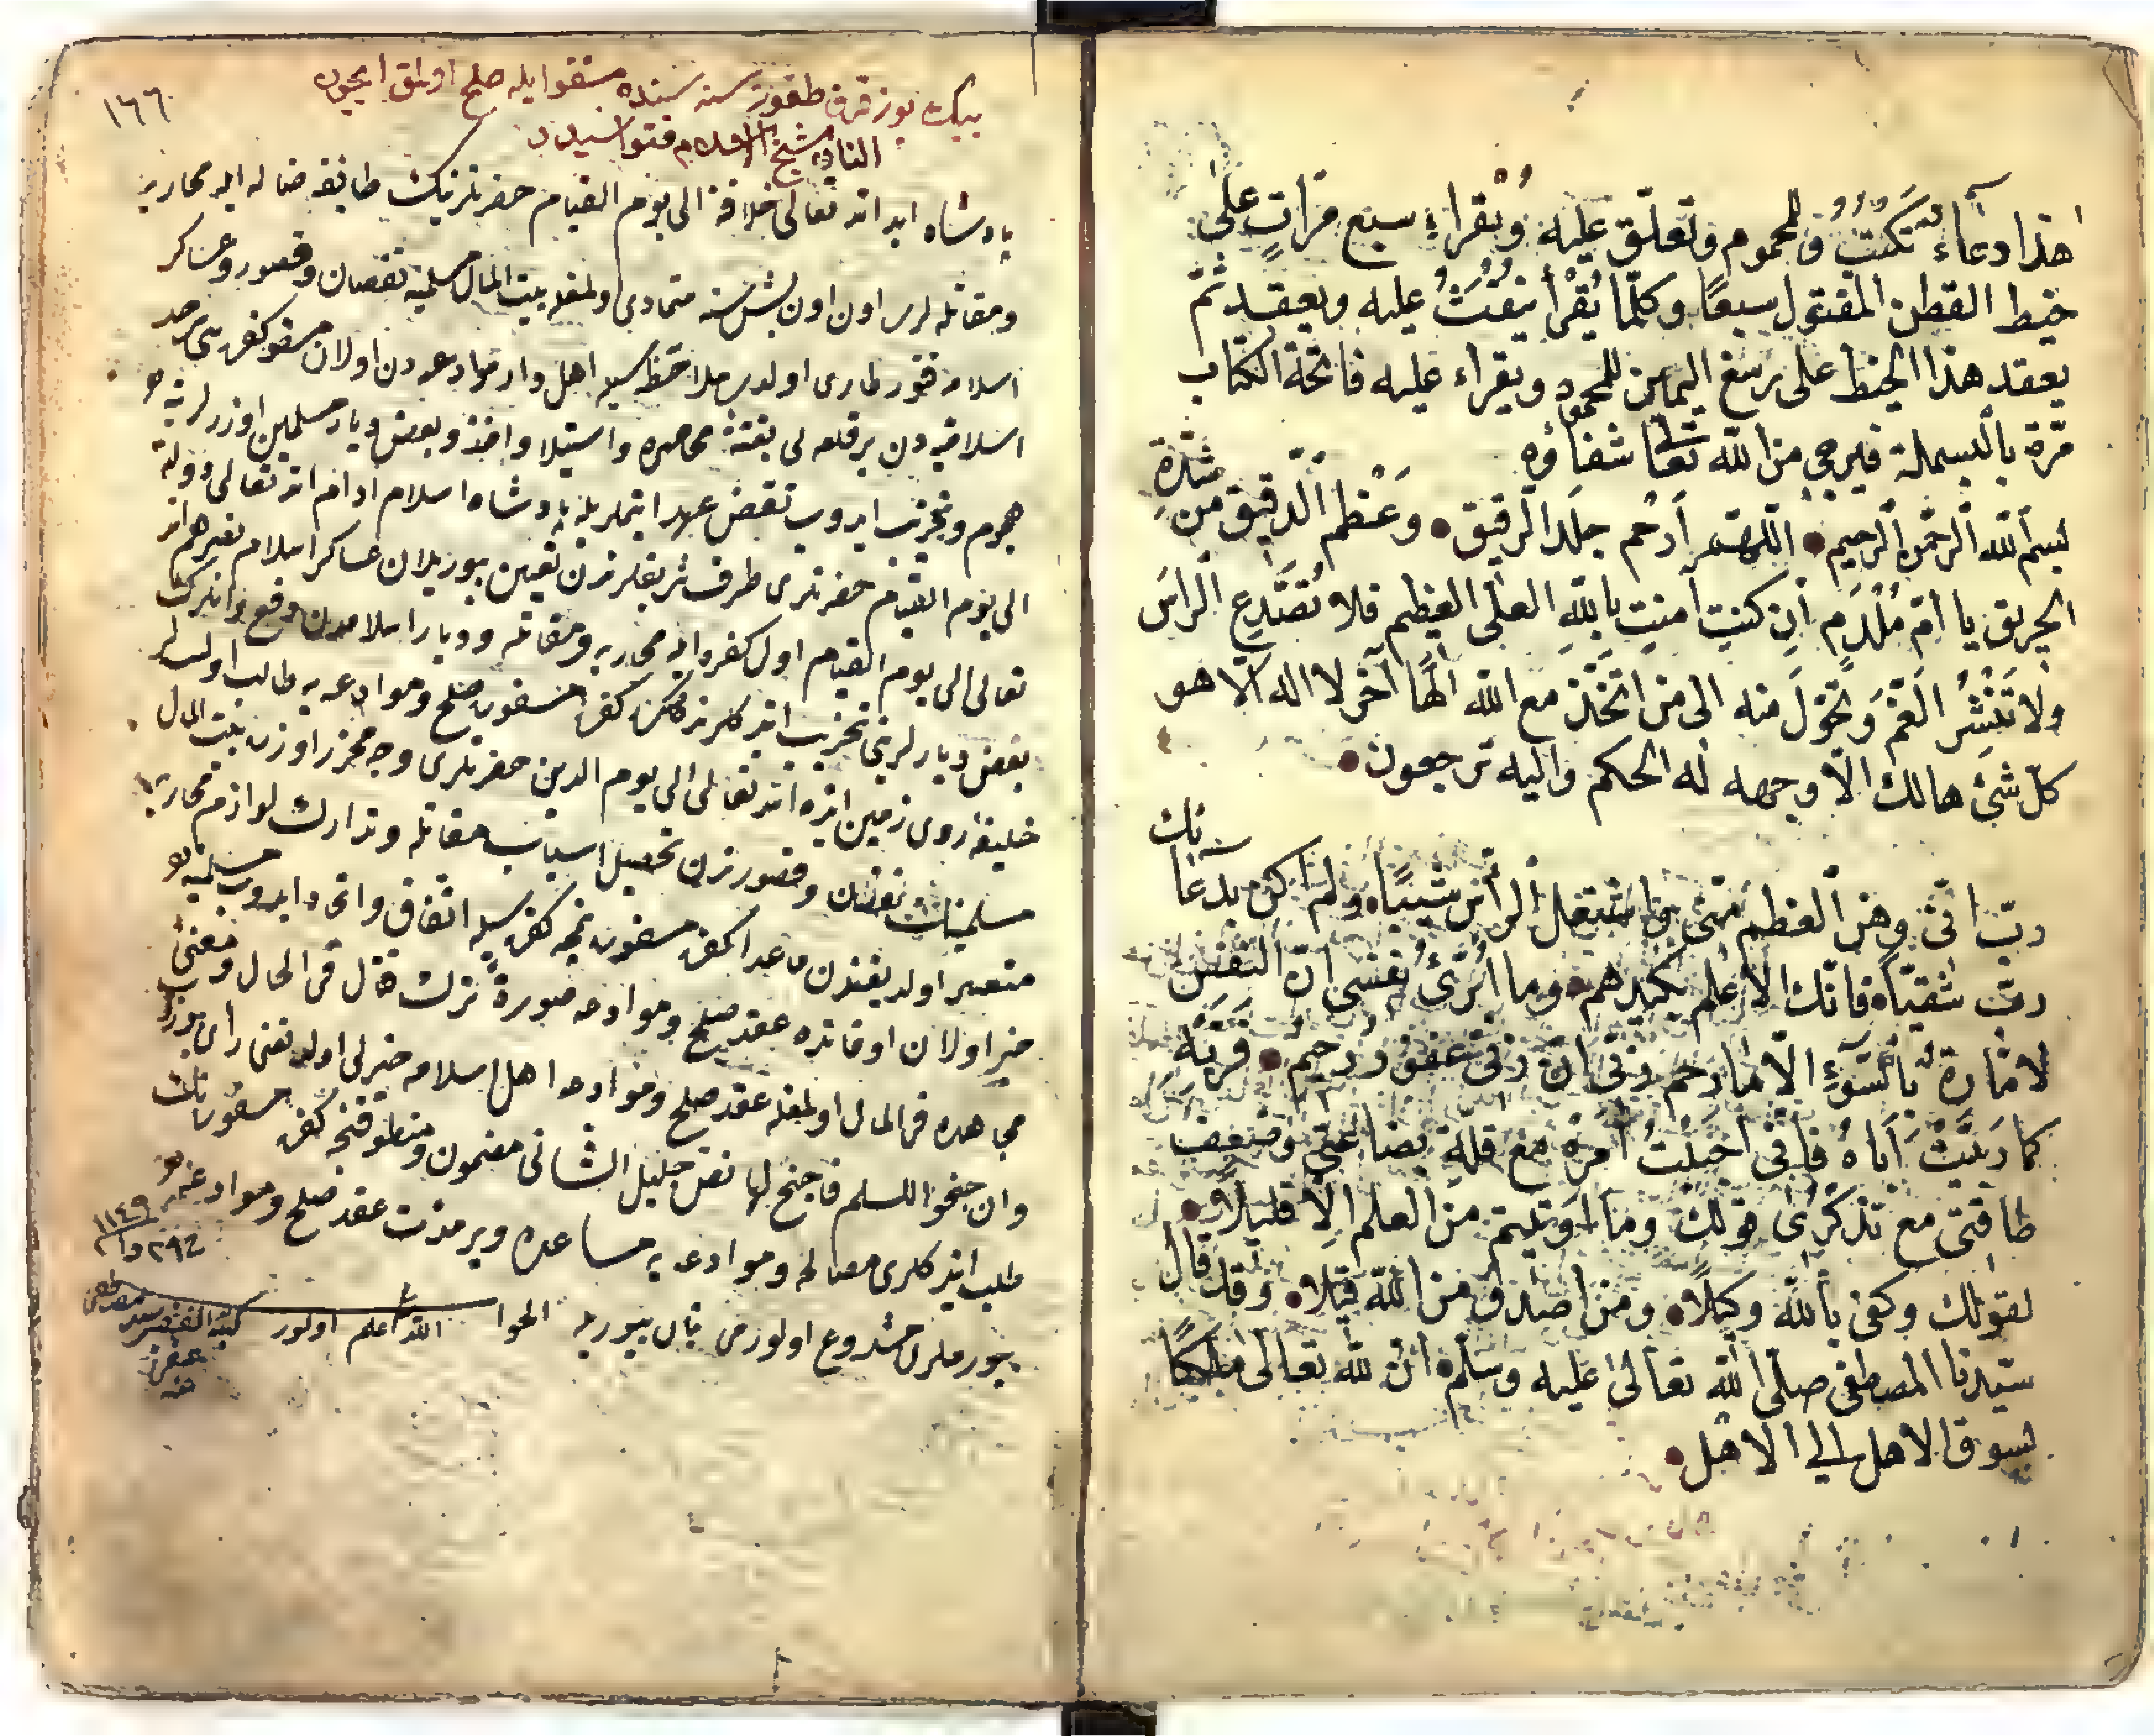 هذا دعاء تكتب للمحموم وتعلق عليه ويقراء سبع مرات على
خيط القطن المفتول سبعا وكلما يقرأ ينفث عليه ويعقد ثم
يعقد هذا الخيط على رسغ اليمامن للمحموم ويقراء عليه فاتحة الكتاب
مرة بالبسملة فيرجى من الله تعا شفاؤه
بسم الله الرحمن الرحيم اللهم ارحم جلد الرقيق وعظم الدقيق من شدة
الحريق يا ام ملدم ان كنت امنت بالله العلى العظيم فلا تصدع الراس
ولا تنثر الغم وتحول منه الى من اتخذ مع الله الها آخر لا اله الا هو
كل شئ هالك الا وجهه له الحكم واليه ترجعون
رب انى وهن العظم منى واشتعل الرأس شيبا ولم اكن بدعائك
رب شقيا فانك الاعلم بكيدهم وما ابرئ نفسى ان النفس
لامارة بالسوء الا ما رحم ربى ان ربى غفور رحيم فربه
كما ربيت اباه فانى اخبلت امره مع قلة بضاعتى وضعف
طاقتى مع تذكرى قولك وما اوتيتم من العلم الا قليلا
لقولك وكفى بالله وكيلا ومن اصدق من الله قيلا وقد قال
سيدنا المصطفى صلى الله تعالى عليه وسلم ان لله تعالى ملكا
يسوق الاهل الى الاهل
١٦٦
بيك يوز قرق طقوز سنه سنده مسقو ايله صلح اولمق ايچون
النان شيخ الاسلام فتواسيدر
پادشاه ايد الله تعالى خلافة الى يوم القيام حضرتلرينك طائفه ضاله ايله محاربه
ومقاتله لرى اون اون بش سنه متمادى اولمغله بيت المال مسلمينه نقصان وقصور وعساكر
اسلامه فتور طارى اولدى ملاحظه سيله اهل وادعه دن اولان مسقو كفره سى سرحد
اسلاميه دن بر قلعه يى بغتة محاصره واستيلا واخذ وبعض ديار مسلمين اوزرلرينه
هجوم وتخريب ايدوب نقض عهد ايتملريله پادشاه اسلام ادام الله تعالى دولته
الى يوم القيام حضرتلرى طرف شريفلرندن تعيين بيوريلان عساكر اسلام نصرهم الله
تعالى الى يوم القيام اول كفره ايله محاربه ومقاتله وديار اسلامدن دفع وانلرك
بعض ديارلرينى تخريب ايتدكلرندنصكره كفره مسقو صلح وموادعه يه طالب اولسه
خليفه روى زمين ايده الله تعالى الى يوم الدين حضرتلرى وجه محرر اوزره بيت المال
مسلمينك نقصان وقصورندن تحصيل اسباب مقاتله وتدارك لوازم محاربه
متعسر اولديغندن ماعدا كفره مسقو نمچه كفره سيله اتفاق واتحاد ايدوب مسلمينه
ضرر اولان اوقاتده عقد صلح وموادعه صورة ترك قتال فى الحال ومعنى
مجاهده فى المال اولمغله عقد صلح وموادعه اهل اسلامه خيرلى اولديغنى رأى بيوروب
وان جنحوا للسلم فاجنح لها نص جليل الشانى مضمون ومنطوقنجه كفره مسقونك
طلب ايتدكلرى مصالحه وموادعه يه مساعده وبر مدت عقد صلح وموادعه
بيورملرى مشروع اولورمى بيان بيوريله الجواب الله اعلم اولور كتبه الفقير سيد مصطفى
عفى عنه
١١٤٩